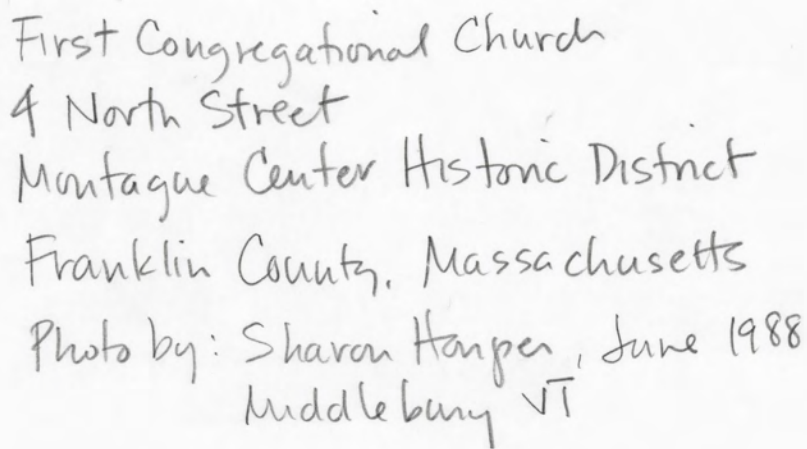 First Congregational Church
4 North Street
Montague Center Historic District
Franklin County, Massachusetts
Photo by: Sharon Harper, June 1988
Middlebury VT